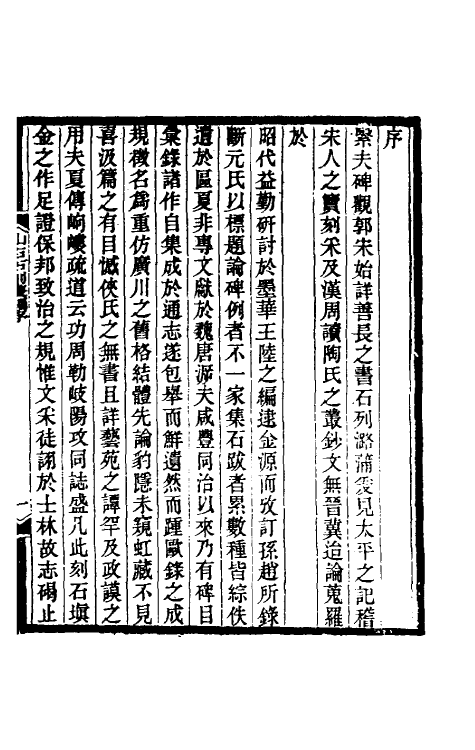 序
繄夫碑觀郭朱始詳善長之書石列潞蒲爰見太平之記稽
宋人之寶刻釆及漢周讀陶氏之叢鈔文無晉冀迨論蒐羅
於
昭代益勤研討於墨華王陸之編逮金源而攷訂孫趙所錄
斷元氏以標題論碑例者不一家集石跋者累數種皆綜佚
遺於區夏非專文獻於魏唐源夫咸豐同治以來乃有碑目
彙錄諸作自集成於通志遂包舉而鮮遺然而踵歐錄之成
規徵名爲重仿廣川之舊格結體先論豹隱未窺虹藏不見
喜汲篇之有目憾俠氏之無書且詳藝苑之譚罕及政謨之
用夫夏傳岣嶁疏道云功周勒岐陽攻同誌盛凡此刻石塡
金之作足證保邦致治之規惟文釆徒詡於士林故志碣止